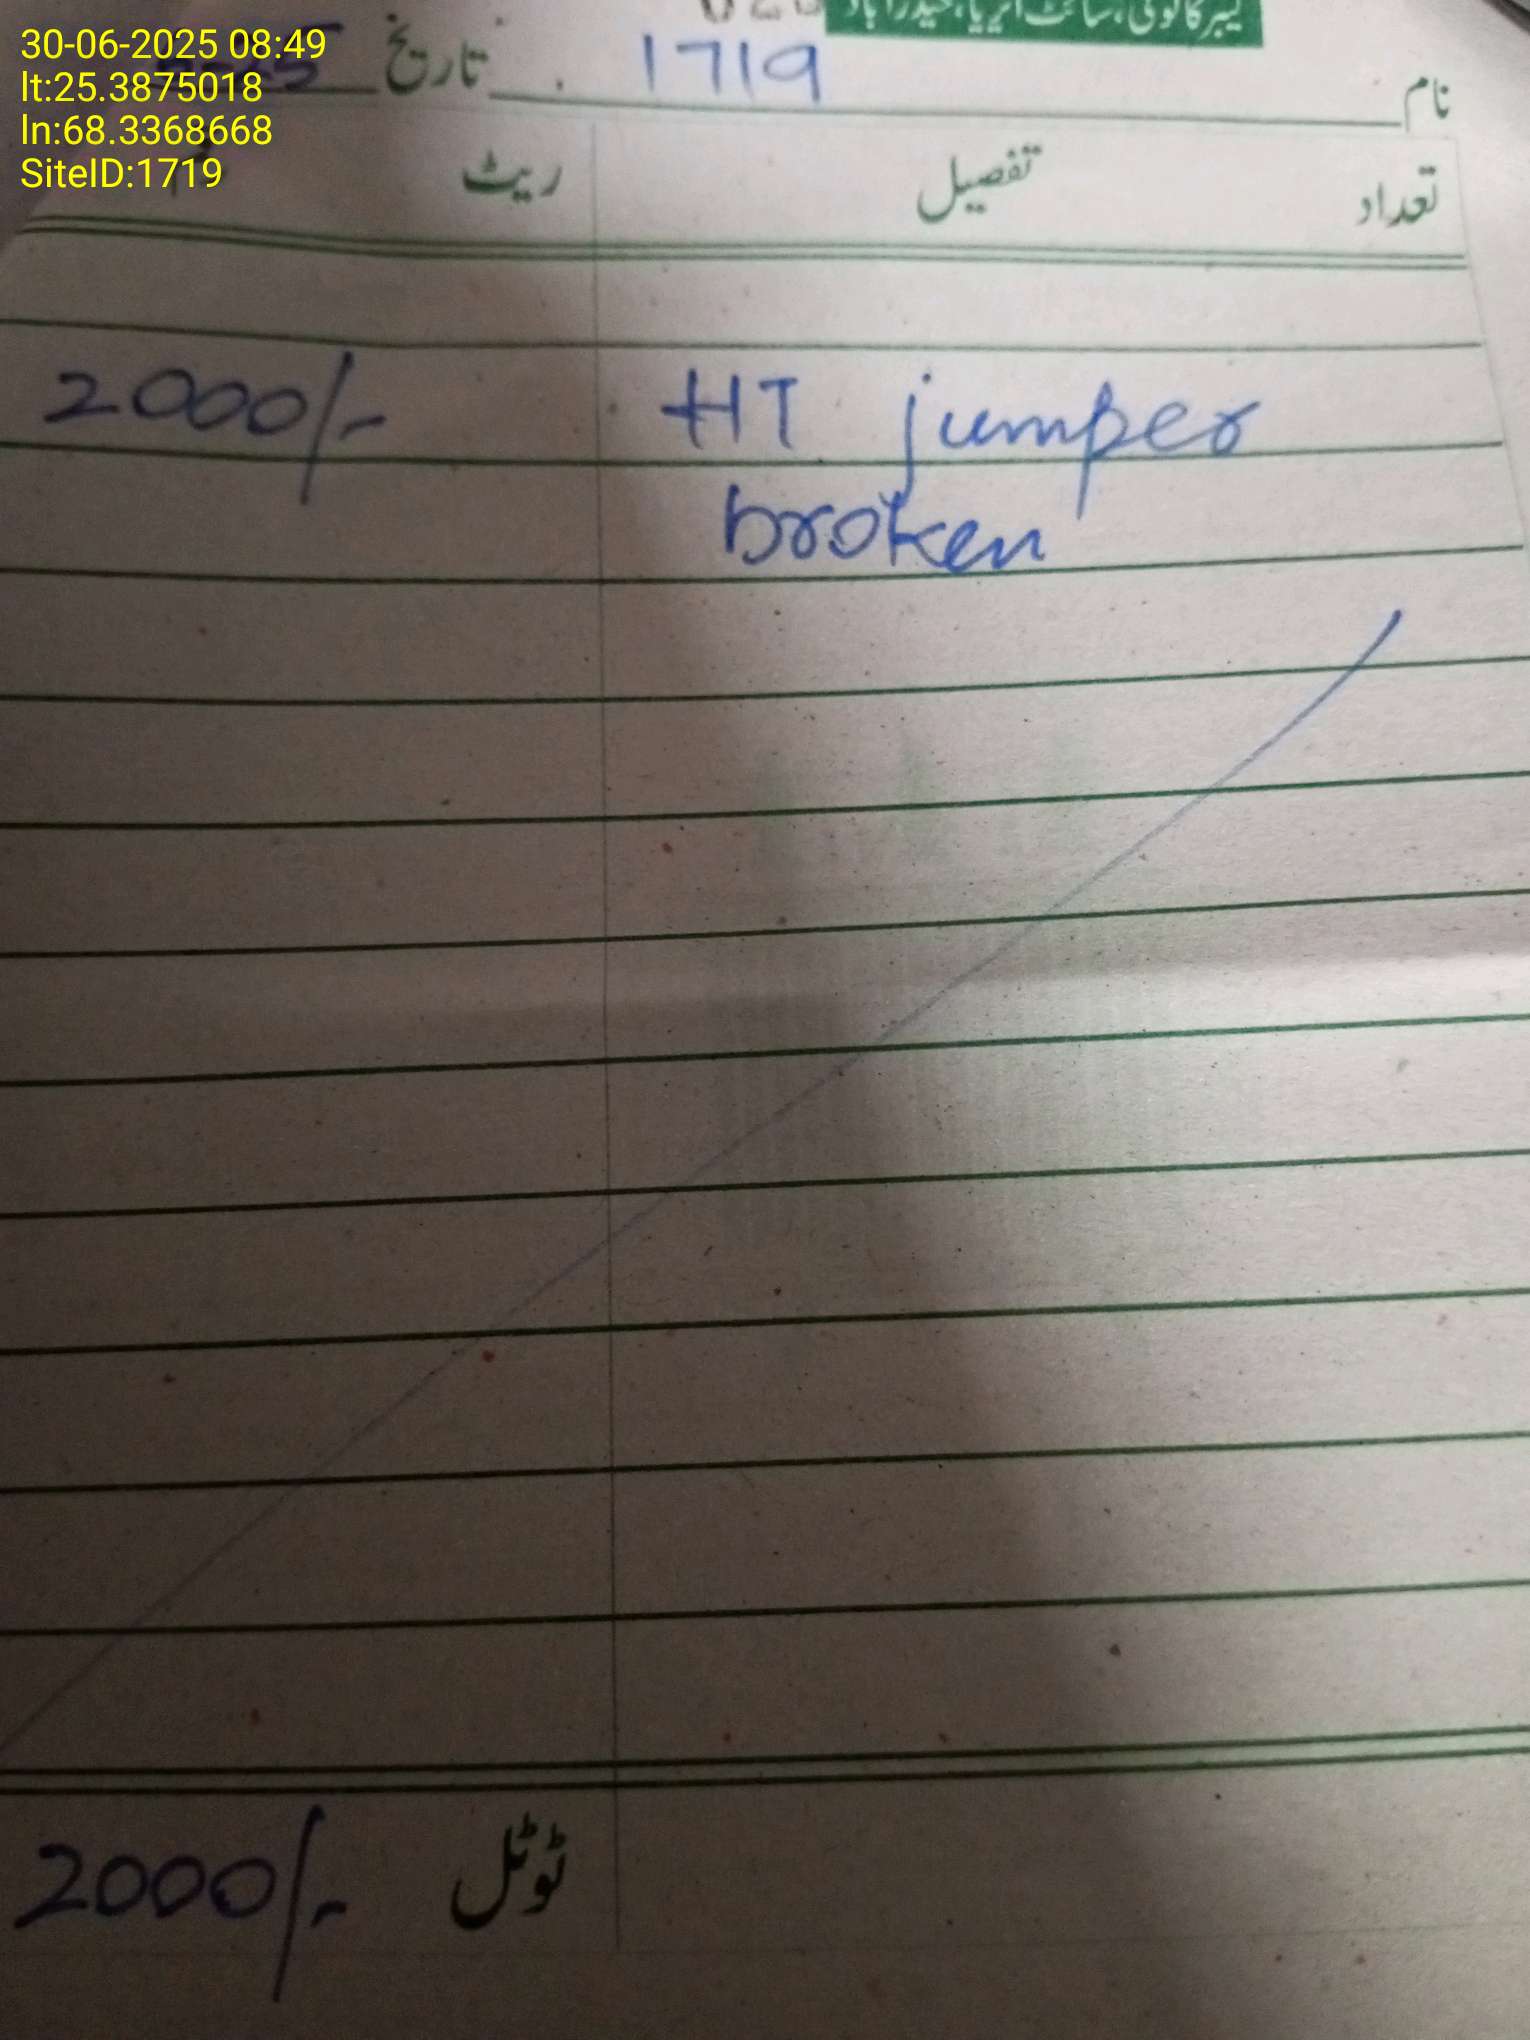 30-06-2025 08:49
lt:25.3875018
ln:68.3368668
SiteID:1719
لیبر کالونی، سائٹ ایریا، حیدرآباد
نام 1719 تاریخ
تعداد تفصیل ریٹ
HT jumper 2000/-
broken
ٹوٹل 2000/-